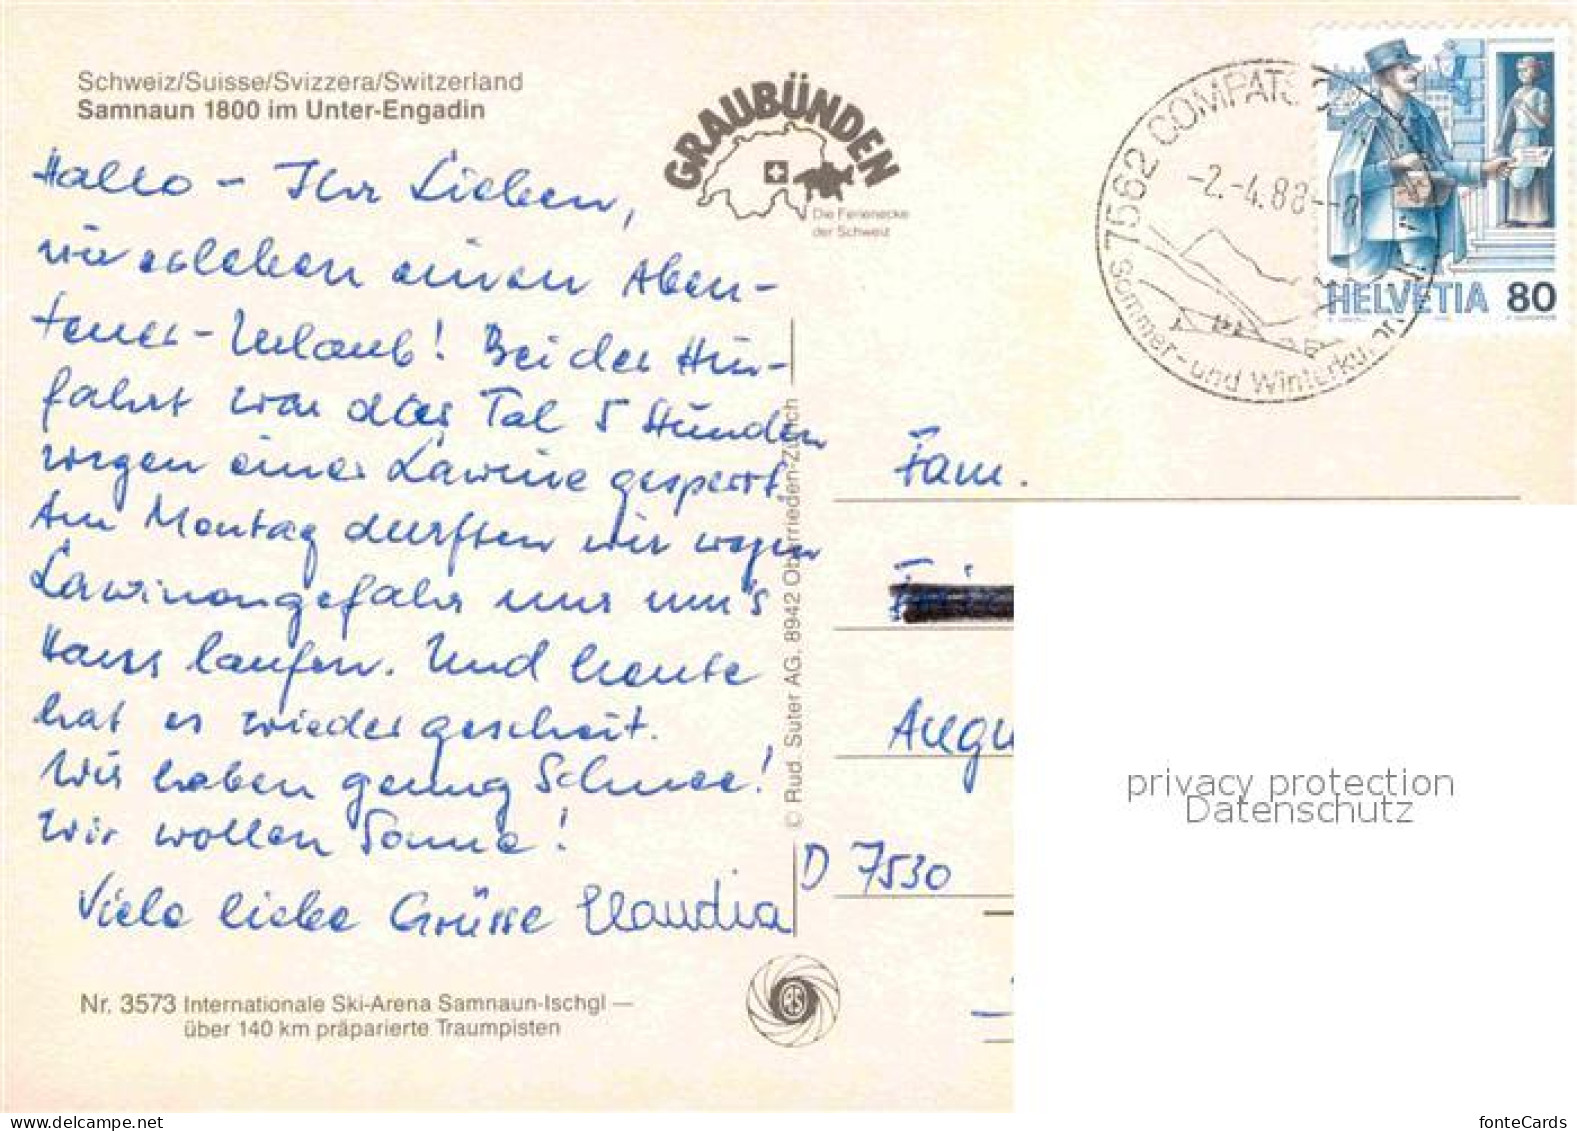 Schweiz/Suisse/Svizzera/Switzerland
Samnaun 1800 im Unter-Engadin
GRAUBÜNDEN
Die Ferienecke
der Schweiz
7562 COMPATSC
-2.-4.88--8
Sommer- und Winterkuror
HELVETIA 80
Hallo - Ihr Lieben,
wir erleben einen Aben-
teuer-Urlaub! Bei der Hin-
fahrt war das Tal 5 Stunden
wegen einer Lawine gesperrt.
Am Montag durften wir wegen
Lawinengefahr nur um's
Haus laufen. Und heute
hat es wieder geschneit.
Wir haben genug Schnee!
Wir wollen Sonne!
Viele liebe Grüsse Claudia
© Rud. Suter AG. 8942 Oberrieden-Zürich
Fam.
Augu
D 7530
privacy protection
Datenschutz
Nr. 3573 Internationale Ski-Arena Samnaun-Ischgl —
über 140 km präparierte Traumpisten
delcampe.net
fonteCards